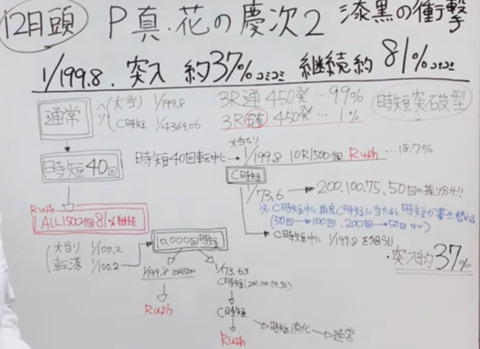 12月頭
P真.花の慶次2 漆黒の衝撃
1/199.8. 突入 約37%コミコミ 継続約81%コミコミ
通常
大当り 1/199.8
C時短 1/4369.06
3R通 450発…99%
3R確 450発…1%
時短突破型
時短40回
時短40回転中に
大当たり
1/199.8 10R1500個 Rush …18.7%
C時短
1/73.6
200.100.75.50回の振り分け!!
(50回→100回、200回→50回など)
C時短中に 1/199.8を狙う!!
突入約37%
Rush
ALL1500個81%継続
大当り 1/100.2
転落 1/100.2
10,000回時短
1/199.8 10R1500
Rush
1/73.63
C時短(200.100.75.50)
C時短
Rush
時短消化
通常